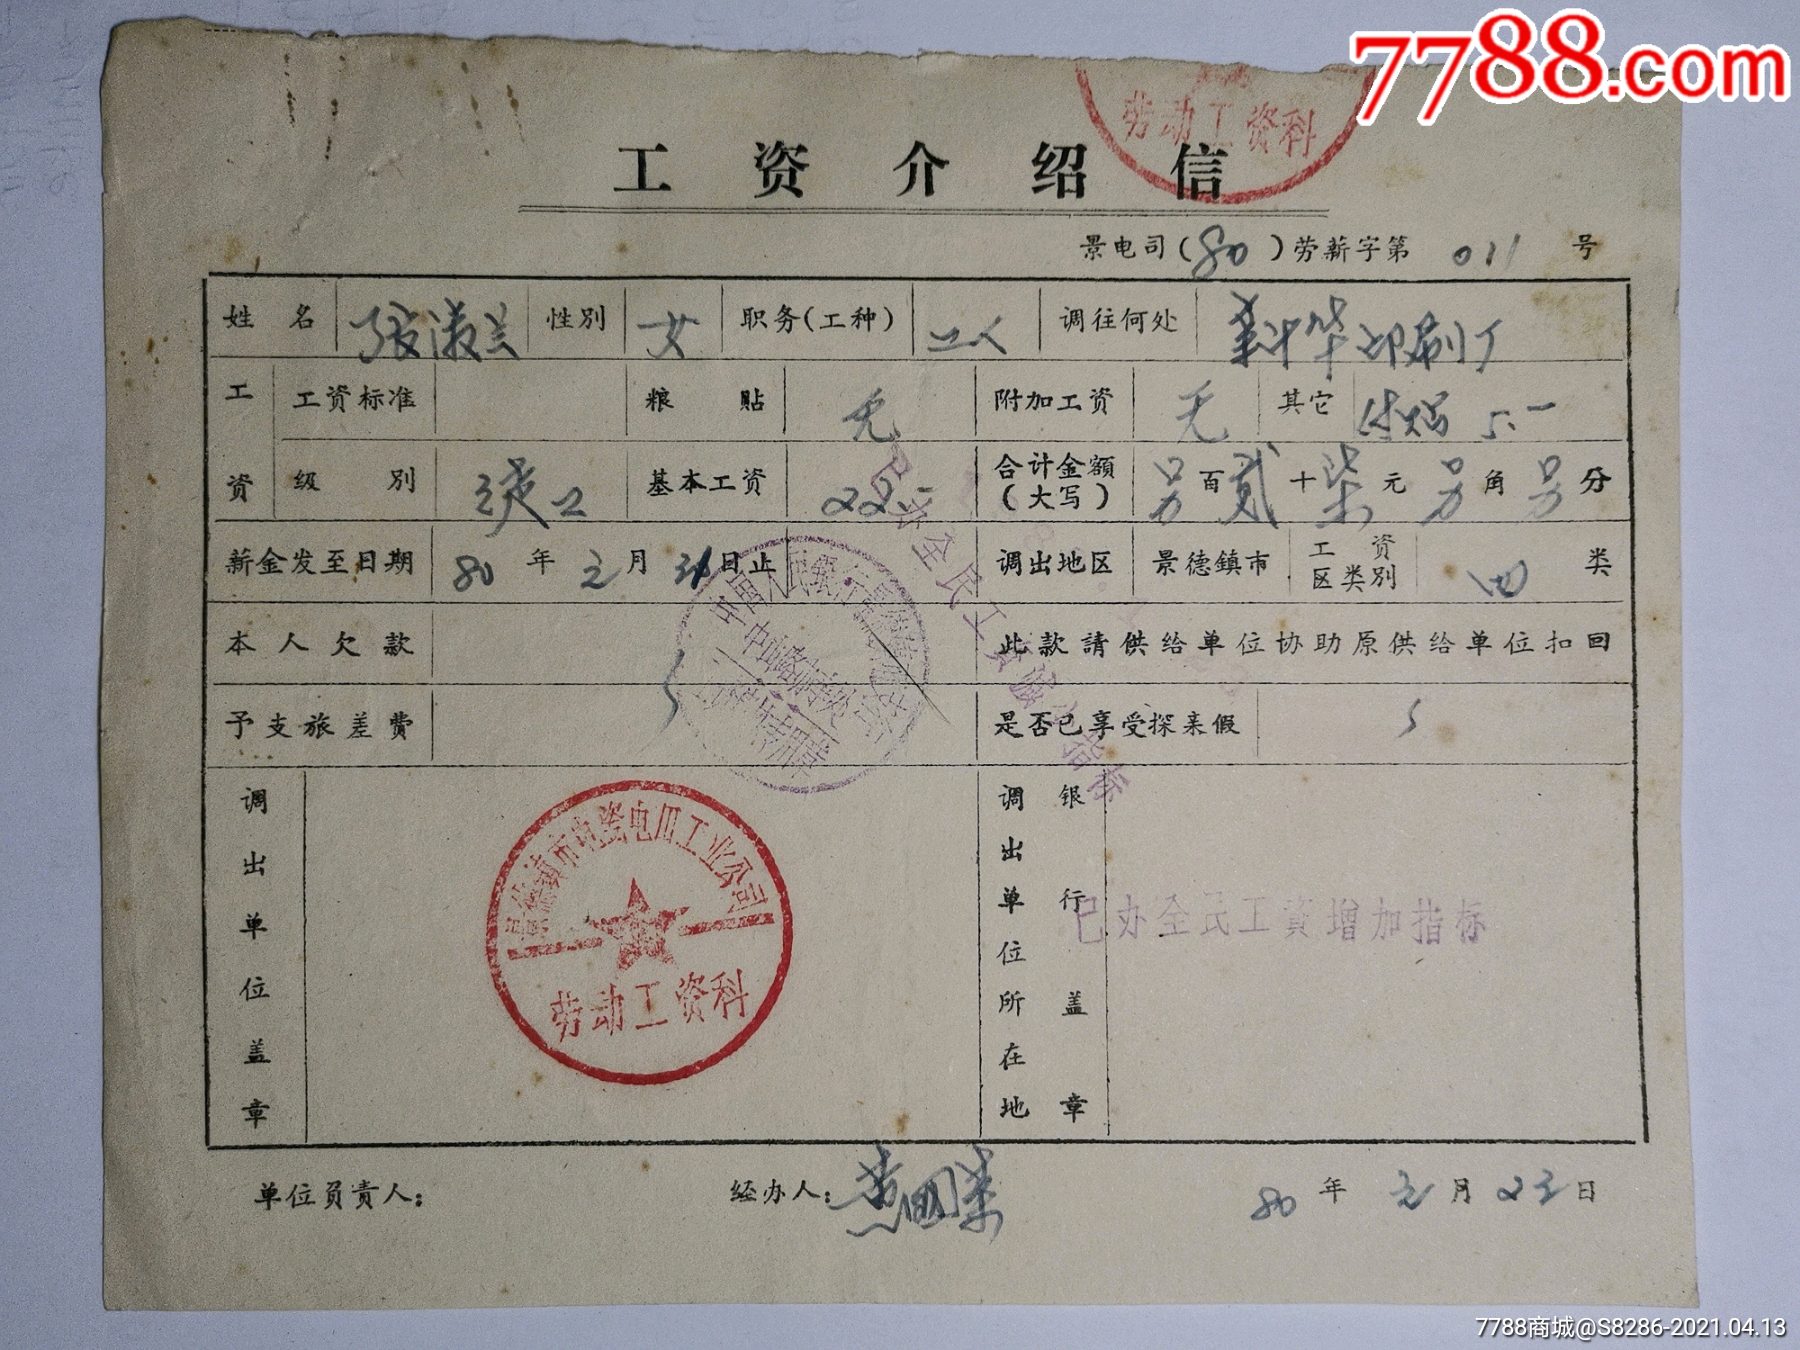 7788.com
劳动工资科
工资介绍信
景电司(80)劳薪字第 011 号
姓名 张淑兰 性别 女 职务(工种) 工人 调往何处 新华印刷厂
工资 工资标准 粮贴 无 附加工资 无 其它 5.一
级别 基本工资 22 合计金额(大写) 另百贰十柒元另角另分
薪金发至日期 80年元月31日止 调出地区 景德镇市 工资区类别 四类
本人欠款 此款請供给单位协助原供给单位扣回
予支旅差费 是否已享受探亲假
已办全民工资增加指标
调出单位盖章 调出单位所在地银行盖章
景德镇市电瓷电瓜工业公司
劳动工资科
已办全民工資增加指标
单位负责人: 经办人:黄国荣 80年元月23日
7788商城@S8286-2021.04.13